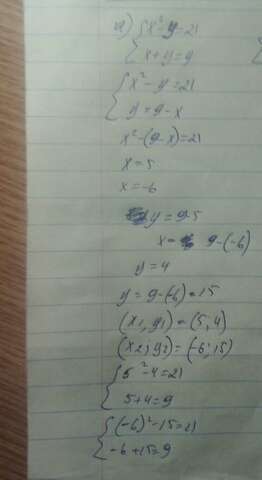 а) { x² - y = 21
x + y = 9
{ x² - y = 21
y = 9 - x
x² - (9 - x) = 21
x = 5
x = -6
y = 9-5
x = 9 - (-6)
y = 4
y = 9 - (-6) = 15
(x₁, y₁) = (5, 4)
(x₂; y₂) = (-6; 15)
{ 5² - 4 = 21
5 + 4 = 9
{ (-6)² - 15 = 21
-6 + 15 = 9